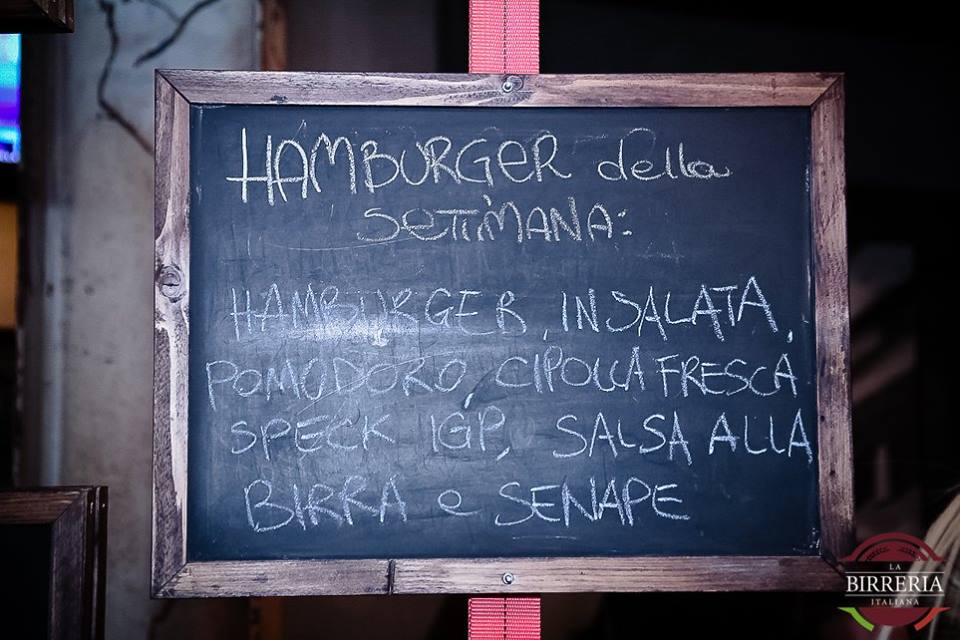 HAMBURGER della
SETTIMANA:
HAMBURGER, INSALATA,
POMODORO, CIPOLLA FRESCA
SPECK IGP, SALSA ALLA
BIRRA e SENAPE
LA
BIRRERIA
ITALIANA